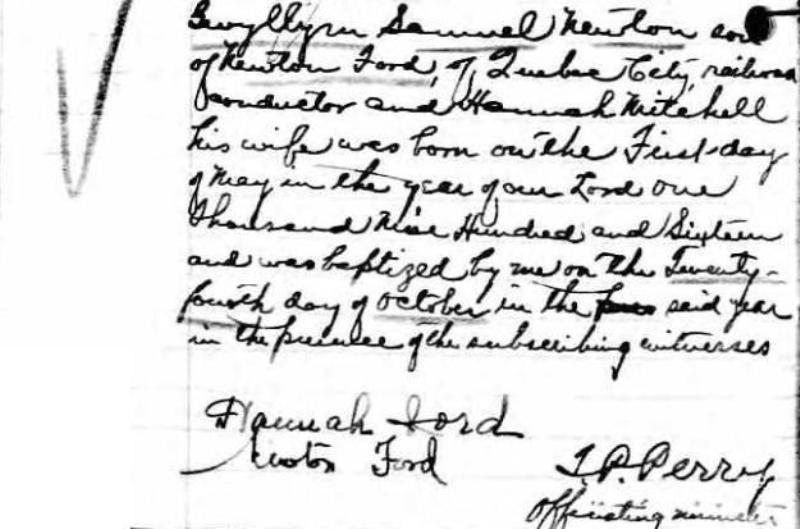 Gwyllym Samuel Newton son
of Newton Ford, of Quebec City, railroad
conductor and Hannah Mitchell
his wife was born on the First day
of May in the year of our Lord one
Thousand Nine Hundred and Sixteen
and was baptized by me on the Twenty-
fourth day of October in the said year
in the presence of the subscribing witnesses
Hannah Ford
Newton Ford
I.P. Perry
Officiating minister